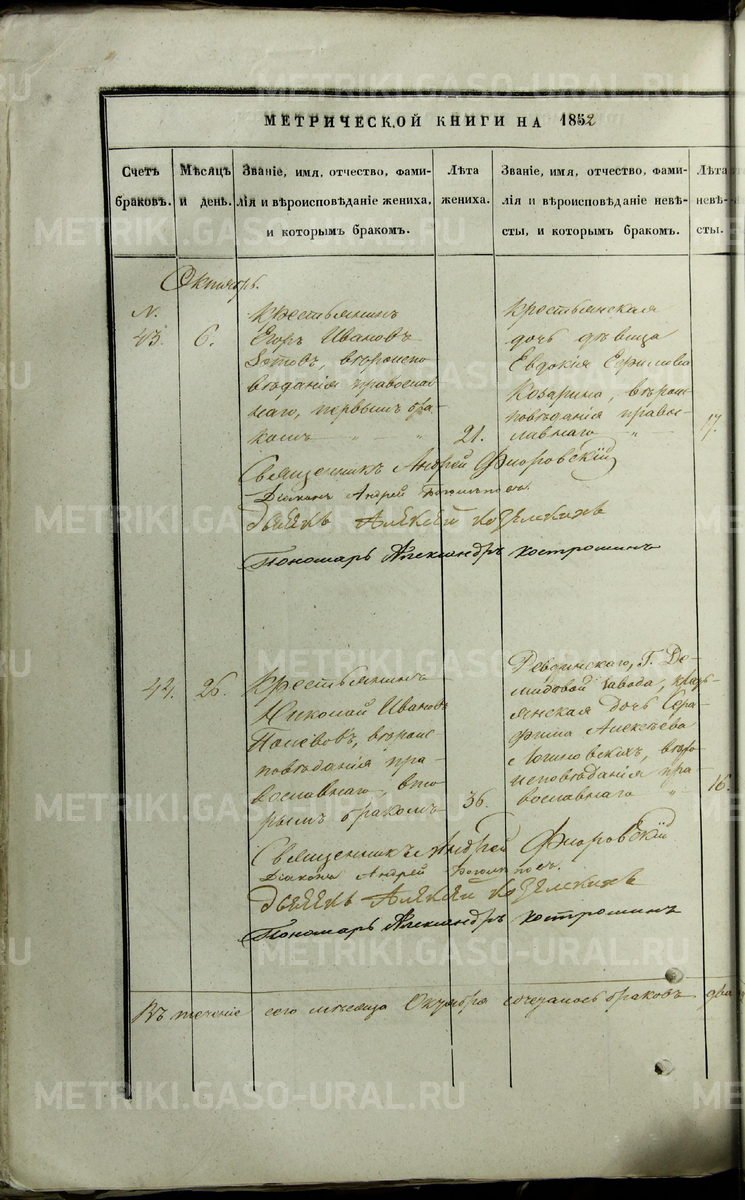 МЕТРИЧЕСКОЙ КНИГИ НА 1852
Счетъ браковъ.
Мѣсяцъ и день.
Званіе, имя, отчество, фами-
лія и вѣроисповѣданіе жениха,
и которымъ бракомъ.
Лѣта
жениха.
Званіе, имя, отчество, фами-
лія и вѣроисповѣданіе невѣ-
сты, и которымъ бракомъ.
Лѣта
невѣ-
сты.
Октябрь.
N.
43.
6.
Крестьянинъ
Егоръ Ивановъ
Зотовъ, вѣроиспо
вѣданія православ
наго, первымъ бра
комъ
21.
Крестьянская
дочь дѣвица
Евдокія Ефимова
Козарина, вѣроис
повѣданія правос
лавнаго
17.
Священникъ Андрей Флоровскій
Діаконъ Андрей
Дьячекъ Алексѣй Козелскихъ
Пономарь Александръ Костроминъ
44.
26.
Крестьянинъ
Николай Ивановъ
Полевовъ, вѣроис
повѣданія пра
вославнаго, вто
рымъ бракомъ
36.
Ревдинскаго, Г. Де-
мидовой завода, крест
янская дочь Сера
фима Алексѣева
Логиновскихъ, вѣро
исповѣданія пра
вославнаго
16.
Священникъ Андрей Флоровскій
Діаконъ Андрей
Дьячекъ Алексѣй Козелскихъ
Пономарь Александръ Костроминъ
Въ теченіе сего мѣсяца Октября сочеталось браковъ два
METRIKI.GASO-URAL.RU